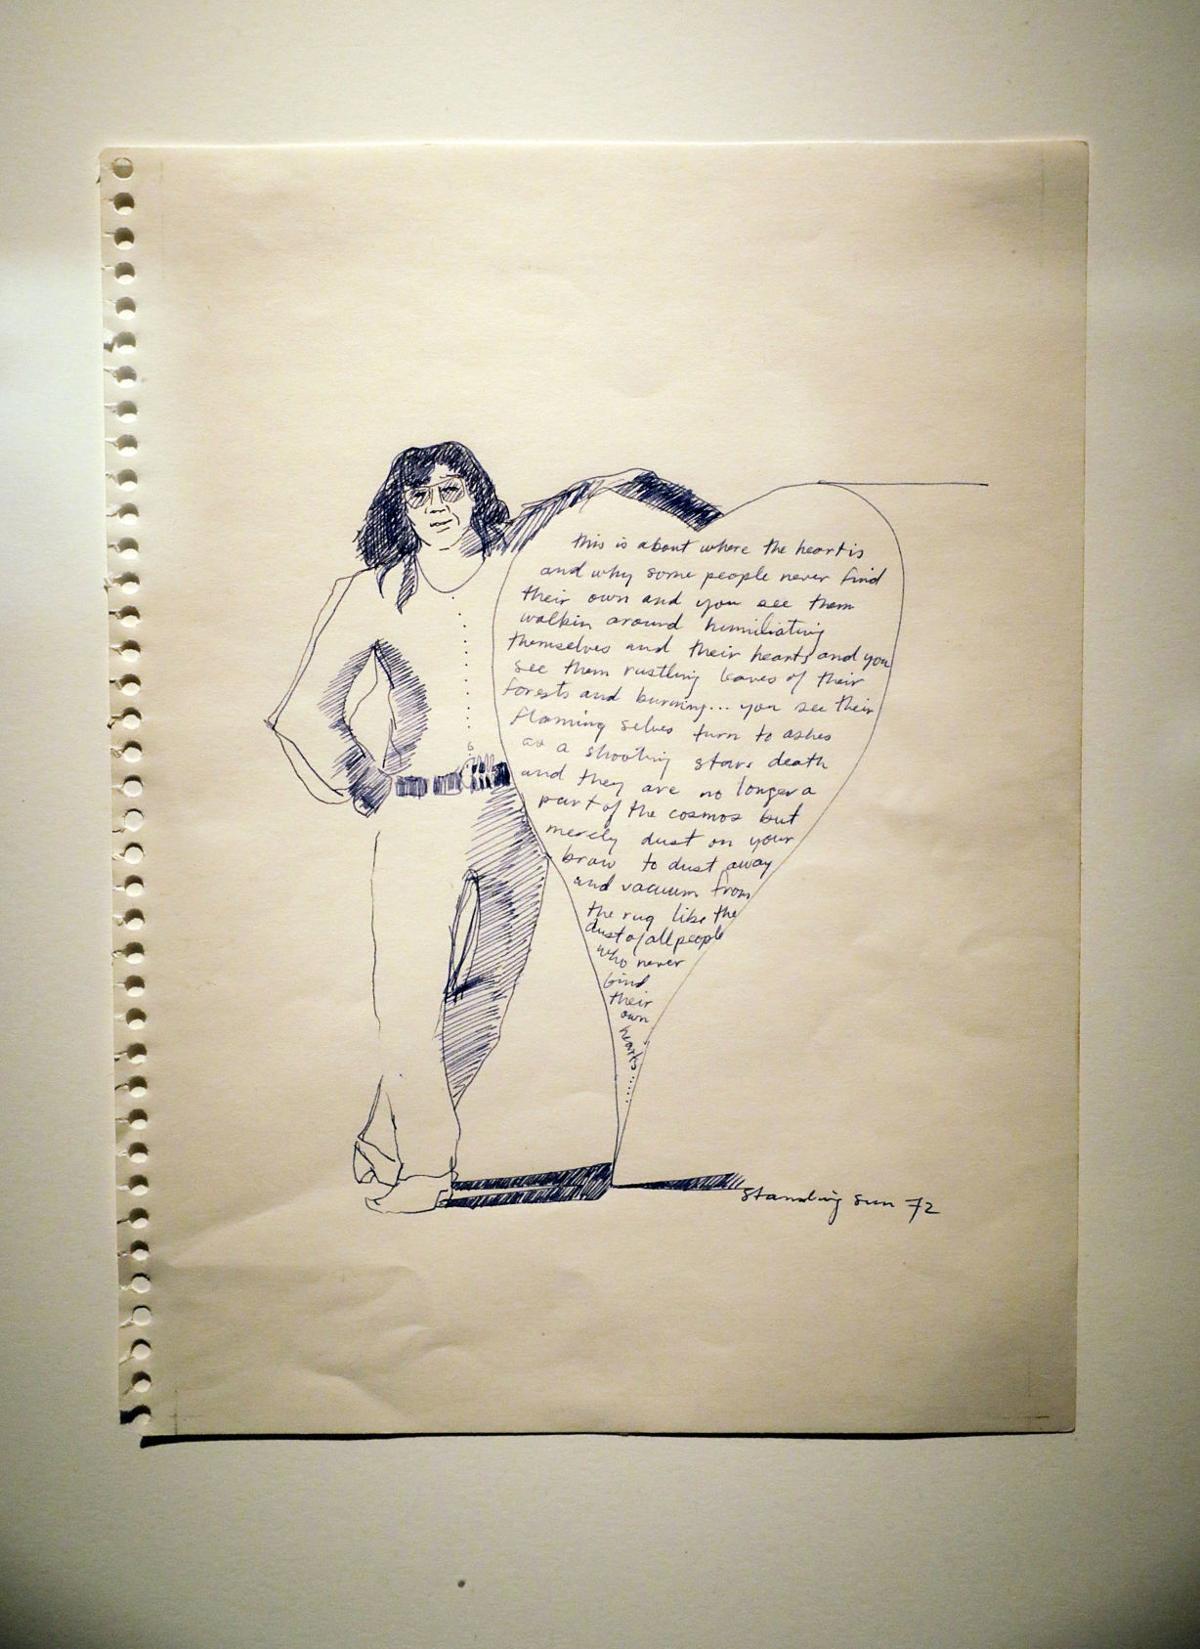 this is about where the heart is
and why some people never find
their own and you see them
walkin around humiliating
themselves and their hearts and you
see them rustling leaves of their
forests and burning... you see their
flaming selves turn to ashes
as a shooting stars death
and they are no longer a
part of the cosmos but
merely dust on your
brow to dust away
and vacuum from
the rug like the
dust of all people
who never
find
their
own
hearts......
standing sun 72